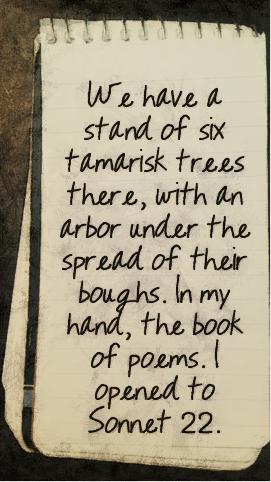 We have a
stand of six
tamarisk trees
there, with an
arbor under the
spread of their
boughs. In my
hand, the book
of poems. I
opened to
Sonnet 22.